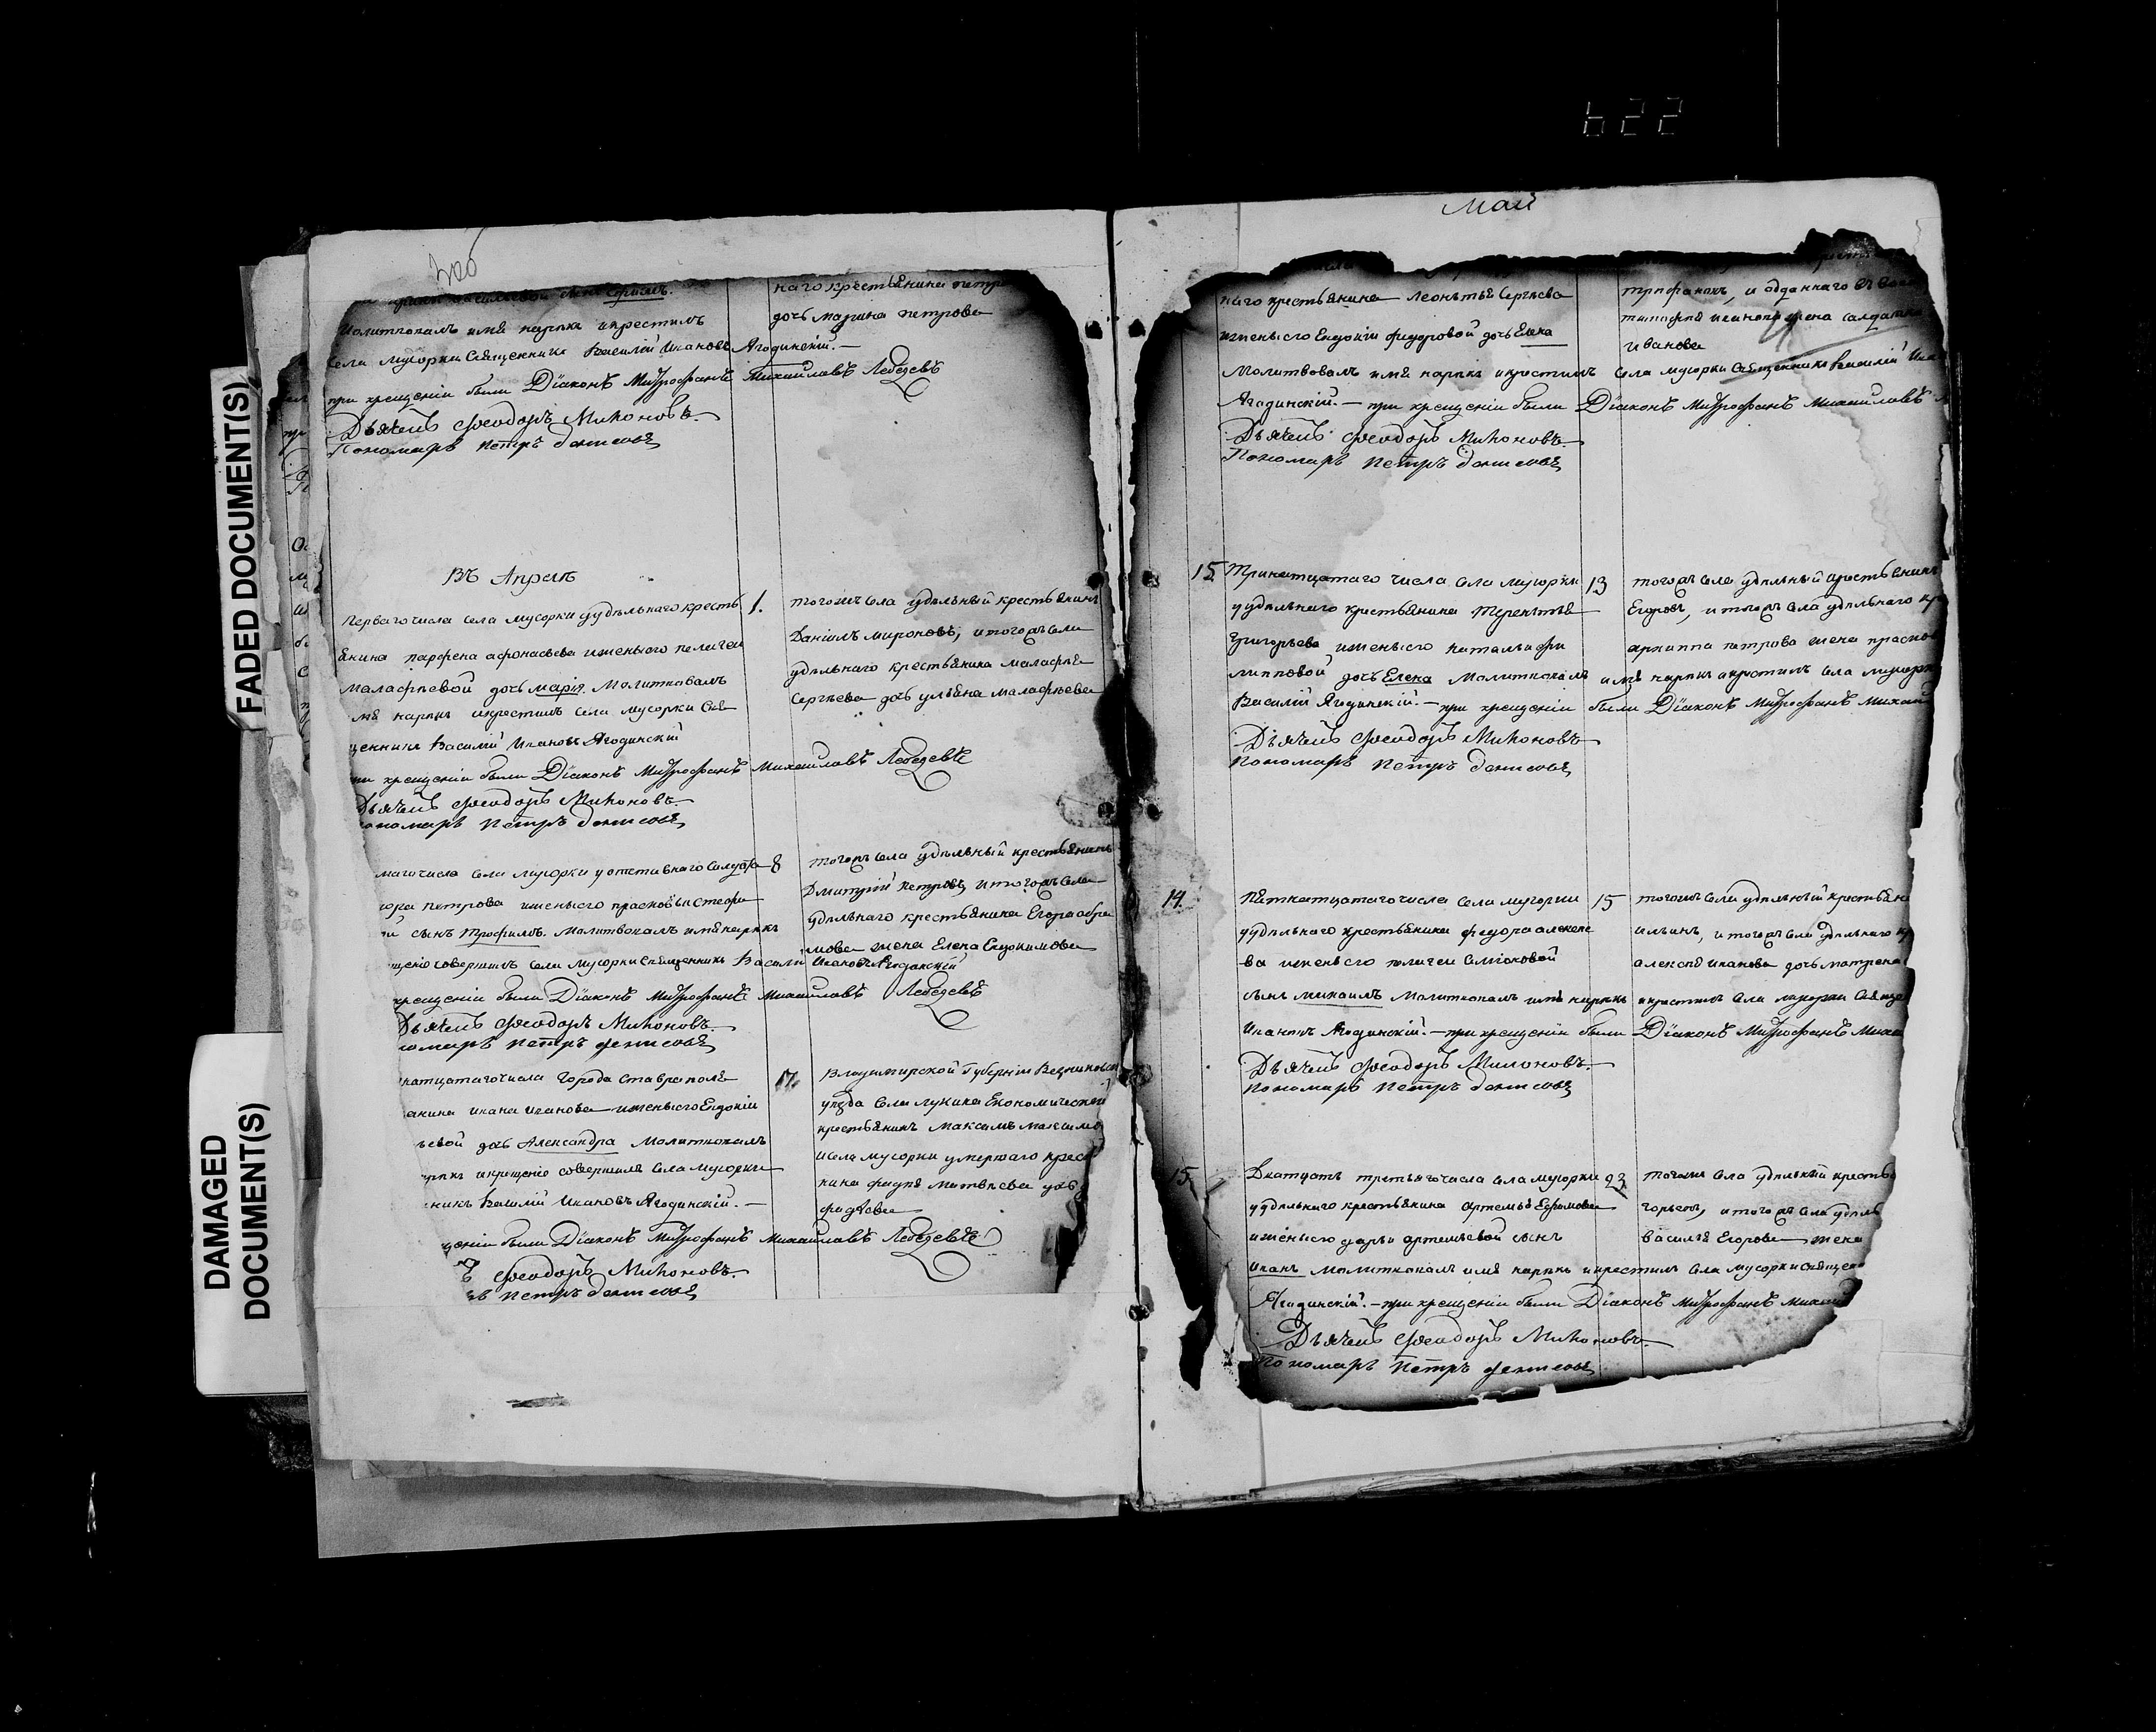 622
FADED DOCUMENT(S)
DAMAGED
DOCUMENT(S)
Молитвовалъ имя нарекъ икрестилъ
села мусорки Священникъ Василій Ивановъ Ягодинскій.—
при крещеніи были Діаконъ Митрофанъ Михаиловъ Лебедевъ
Дьячекъ Феодоръ Миконовъ.
Пономарь Петръ денисовъ
наго крестьянина петра
дочь марина петрова
Въ Апреле
Перваго числа села мусорки уудѣльнаго кресть
янина парфена афонасьева иженыего пелагеи
малафѣевой дочь марія. Молитвовалъ
имя нарекъ икрестилъ села мусорки Свя
щенникъ Василій Ивановъ Ягодинскій
при крещеніи были Діаконъ Митрофанъ Михаиловъ Лебедевъ
Дьячекъ Феодоръ Миконовъ.
пономарь Петръ денисовъ
1.
тогожъ села удѣльный крестьянинъ
Даніилъ мироновъ, итогожъ села
удѣльнаго крестьянина малафѣя
Сергѣева дочь ульяна малафѣева
маго числа села мусорки уотставнаго Солдата
петрова иженыего прасковьи стефа
сынъ трофимъ. Молитвовалъ имя нарекъ
щеніе совершилъ села мусорки священникъ Василій Ивановъ Ягодинскій
крещеніи были Діаконъ Митрофанъ Михаиловъ Лебедевъ
Дьячекъ Феодоръ Миконовъ.
номарь Петръ денисовъ
8
тогожъ села удѣльный крестьянинъ
Дмитрій петровъ, итогожъ села
удѣльнаго крестьянина Егора абра
мова жена Елена Евдокимова
натцатаго числа города ставрополя
анина ивана иванова иженыего Евдокіи
ьевой дочь Александра Молитвовалъ
нарекъ икрещеніе совершилъ села мусорки
никъ Василій Ивановъ Ягодинскій.—
щеніи были Діаконъ Митрофанъ Михаиловъ Лебедевъ
Феодоръ Миконовъ.
Петръ денисовъ
17.
Владимирской Губерніи Вязниковской
уѣзда села лукина Економической
крестьянинъ Максимъ максимо
исела мусорки умершаго крес
нина фадѣя матвѣева дочь
фадѣева
Май
наго крестьянина леонтья Сергѣева
иженыего Евдокіи фидоровой дочь Елена
Молитвовалъ имя нарекъ икрестилъ села мусорки Священникъ Василій Ива
Ягодинскій.— при крещеніи были Діаконъ Митрофанъ Михаиловъ
Дьячекъ Феодоръ Миконовъ.
Пономарь Петръ денисовъ
трифановъ, и отданнаго въ
тимофея иванова жена салдатка
иванова
Тринатцатаго числа села мусорки
уудѣльнаго крестьянина терентья
григорьева иженыего натальи фи
липповой дочь Елена Молитвовалъ имя нарекъ икрестилъ села мусорки
Василій Ягодинскій.— при крещеніи были Діаконъ Митрофанъ Михаи
Дьячекъ Феодоръ Миконовъ
Пономарь Петръ денисовъ
13
тогожъ села удѣльный крестьянинъ
Егоровъ, итогожъ села удѣльнаго кре
архиппа петрова жена праско
14.
Пятнатцатаго числа села мусорки
уудѣльнаго крестьянина федора алексѣе
ва иженыего пелагеи
сынъ михаилъ Молитвовалъ имя нарекъ икрестилъ села мусорки Свяще
Ивановъ Ягодинскій.— при крещеніи были Діаконъ Митрофанъ Миха
Дьячекъ Феодоръ Миконовъ.
пономарь Петръ денисовъ
15
тогожъ села удѣльный крестьяни
ильинъ, итогожъ села удѣльнаго кр
алексѣя иванова дочь матрена
15.
Дватцать третьяго числа села мусорки
уудѣльнаго крестьянина Артемья Ефимова
иженыего дарьи артемьевой сынъ
Иванъ Молитвовалъ имя нарекъ икрестилъ села мусорки священ
Ягодинскій.— при крещеніи были Діаконъ Митрофанъ Михаи
Дьячекъ Феодоръ Миконовъ.
Пономарь Петръ денисовъ
23
тогожъ села удѣльный кресть
горьевъ, итогожъ села удѣль
василья Егорова жена